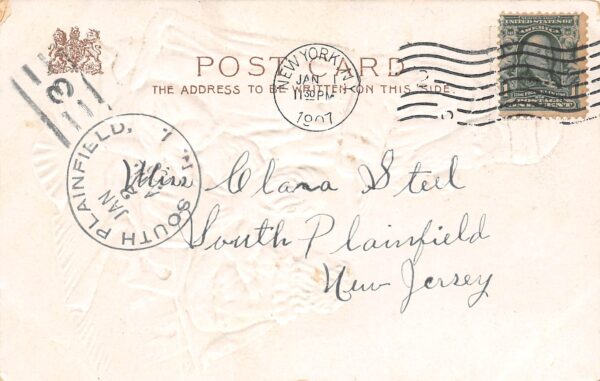 POST CARD
THE ADDRESS TO BE WRITTEN ON THIS SIDE.
NEW YORK, N.Y.
JAN 1
11 30 PM
1907
UNITED STATES OF AMERICA
POSTAGE
ONE CENT
3
SOUTH PLAINFIELD, N.J.
JAN
2
Miss Clara Steel
South Plainfield
New Jersey